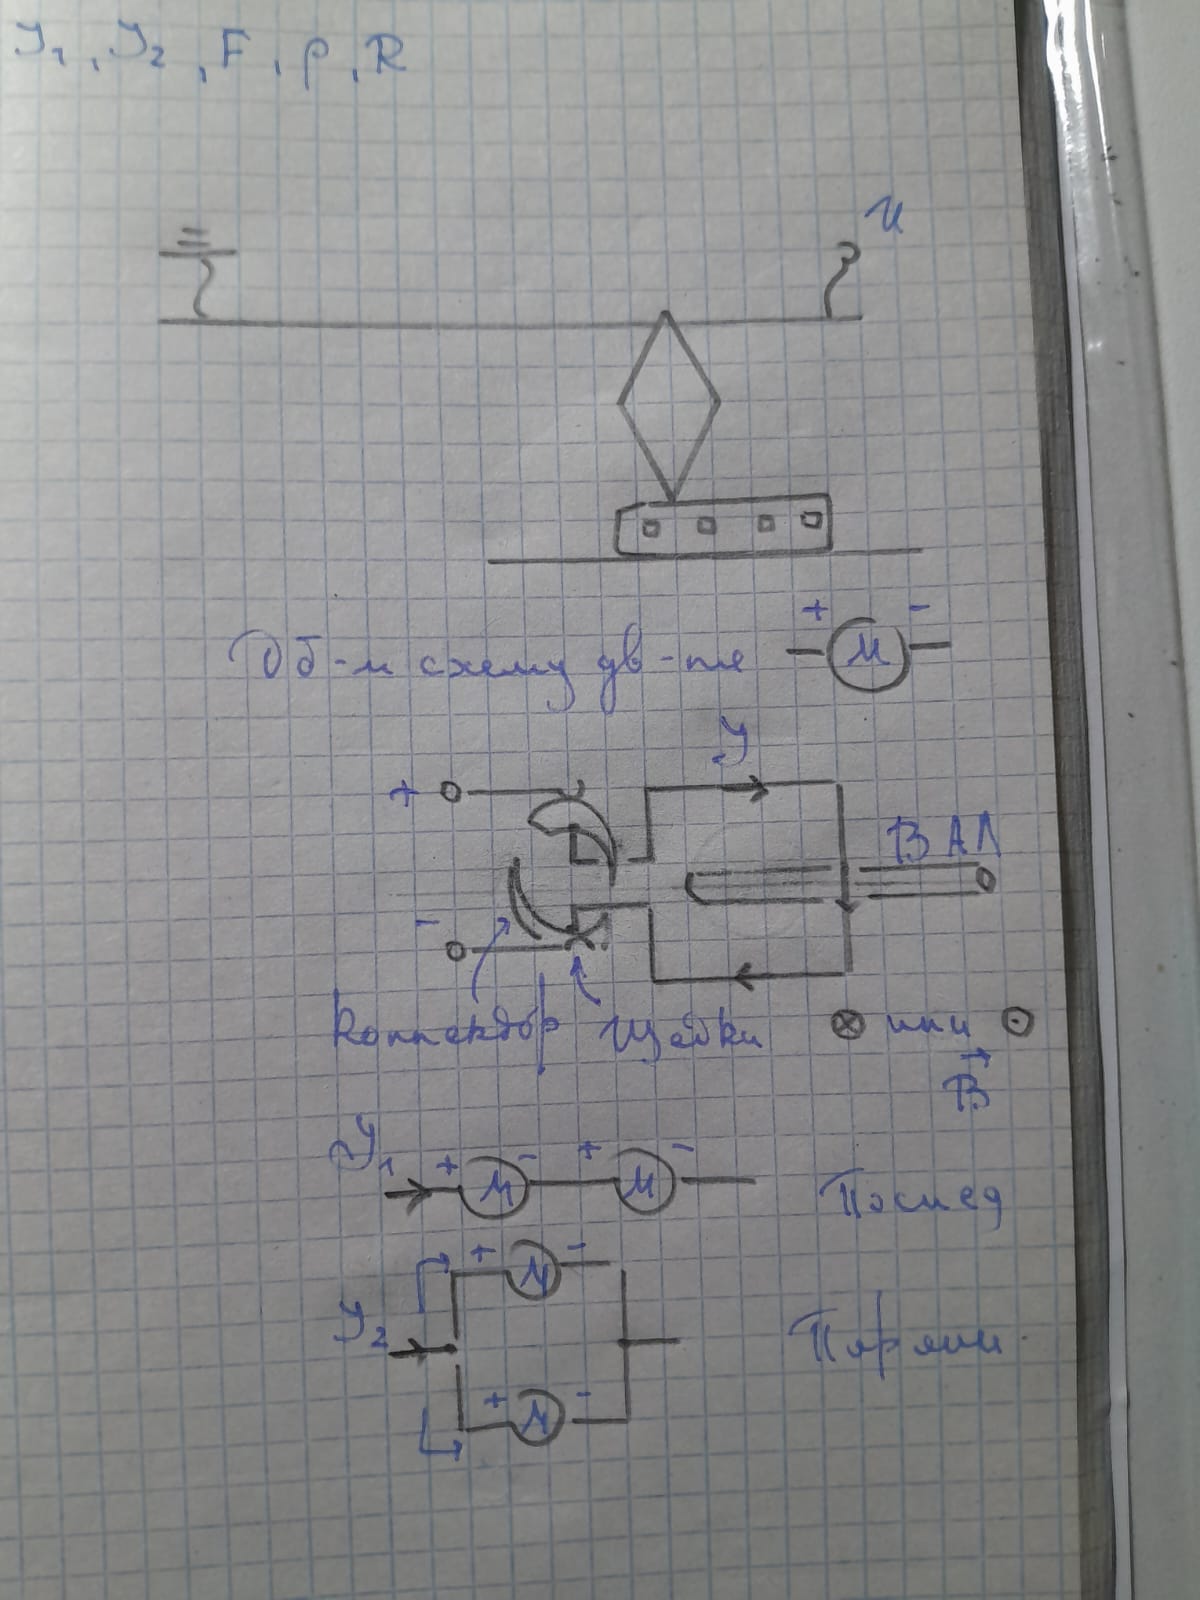 I₁, I₂, F, ρ, R
U
Об-м схему дв-ле + M -
I
+
ВАЛ
-
Коллектор Щетки ⊗ или ⊙
B⃗
I₁ + M - + M - Послед
+ M -
I₂ Паралл
+ M -